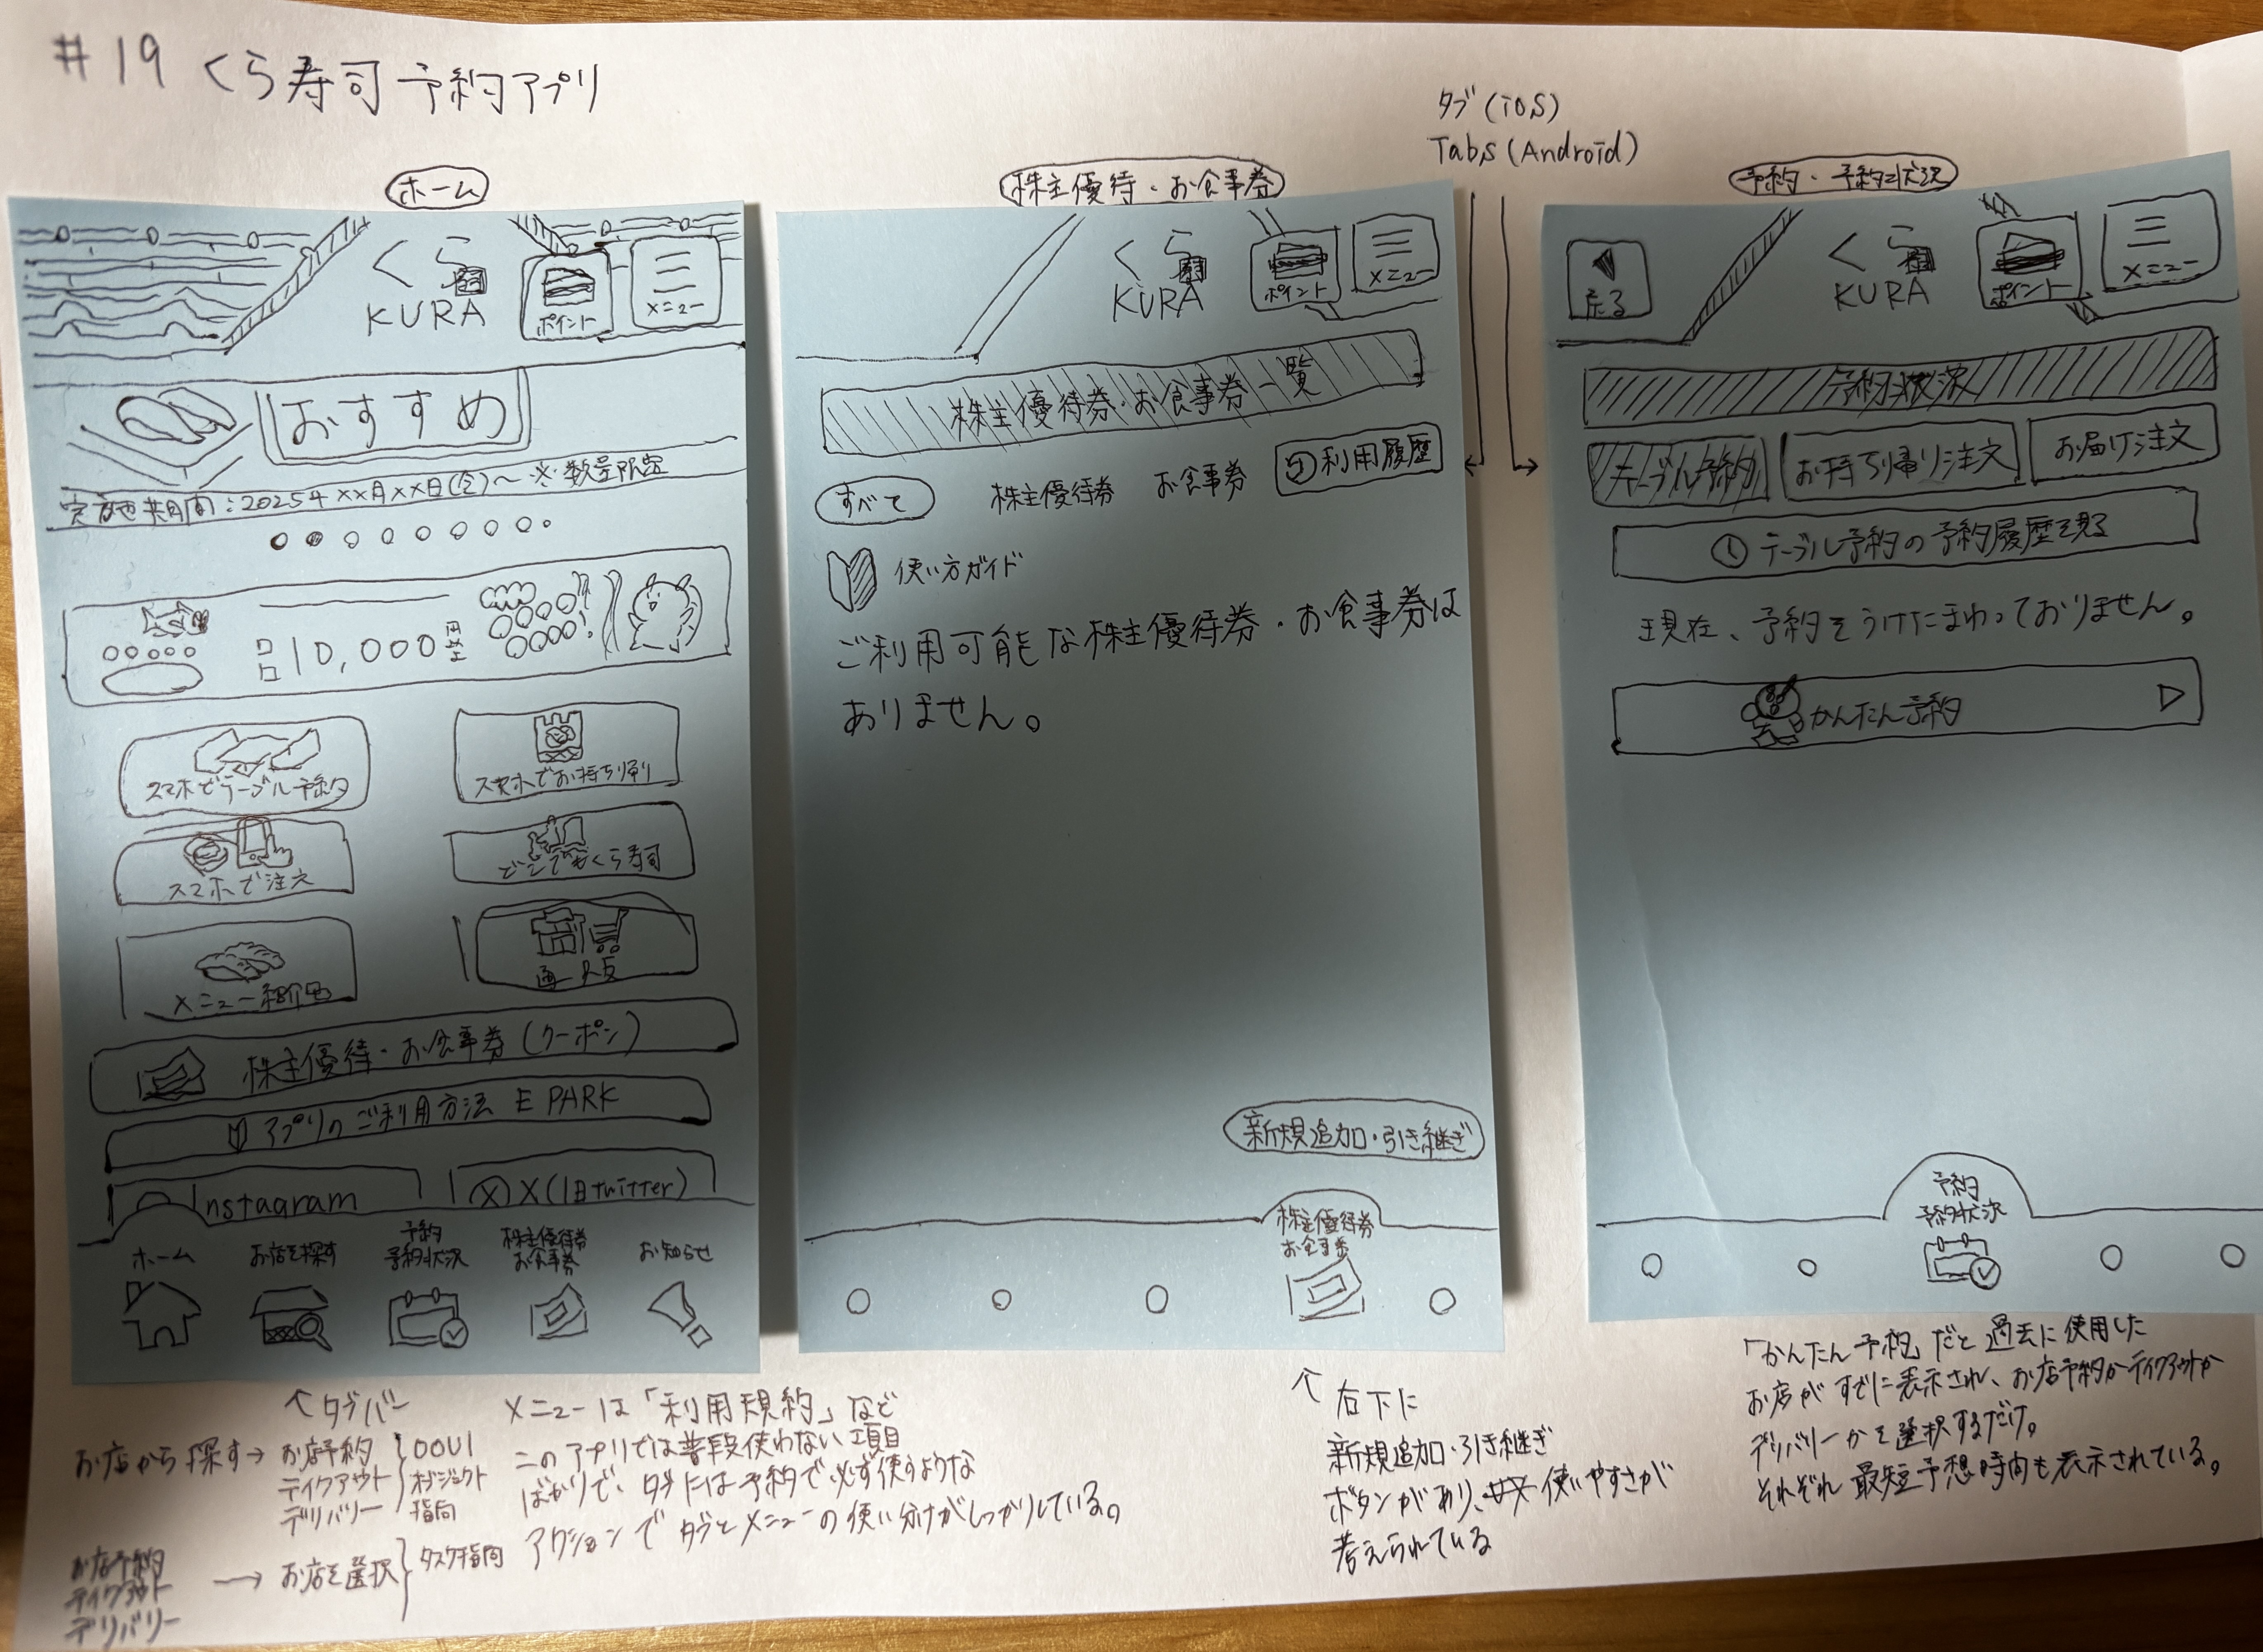 #19 くら寿司 予約アプリ
タブ(iOS)
Tabs(Android)
ホーム
くら寿司
KURA
ポイント
メニュー
おすすめ
実施期間:2025年××月××日(金)〜 ※数量限定
10,000円
スマホでテーブル予約
スマホでお持ち帰り
スマホで注文
どこでもくら寿司
メニュー紹介
通販
株主優待・お食事券(クーポン)
アプリのご利用方法 EPARK
Instagram
X(旧twitter)
ホーム
お店を探す
予約
予約状況
株主優待券
お食事券
お知らせ
株主優待・お食事券
くら寿司
KURA
ポイント
メニュー
株主優待券・お食事券一覧
すべて
株主優待券
お食事券
利用履歴
使い方ガイド
ご利用可能な株主優待券・お食事券は
ありません。
新規追加・引き継ぎ
株主優待券
お食事券
予約・予約状況
戻る
くら寿司
KURA
ポイント
メニュー
予約状況
テーブル予約
お持ち帰り注文
お届け注文
テーブル予約の予約履歴を見る
現在、予約をうけたまわっておりません。
かんたん予約
予約
予約状況
↑タブバー
お店から探す→
お店予約
テイクアウト
デリバリー
OOUI
オブジェクト
指向
お店予約
テイクアウト
デリバリー
→お店を選択
タスク指向
メニューは「利用規約」など
このアプリでは普段使わない項目
ばかりで、タブには予約で必ず使うような
アクションでタブとメニューの使い分けがしっかりしている。
↑右下に
新規追加・引き継ぎ
ボタンがあり、使いやすさが
考えられている
「かんたん予約」だと過去に使用した
お店がすでに表示され、お店予約かテイクアウトか
デリバリーかを選択するだけ。
それぞれ最短予想時間も表示されている。